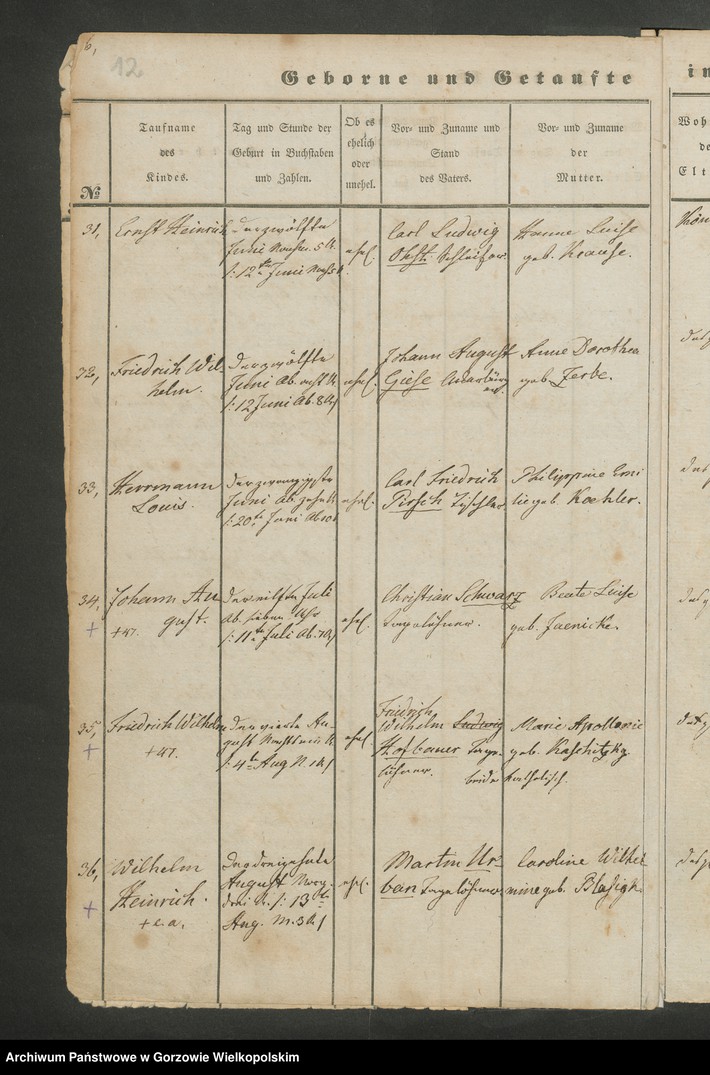 6,
12
Geborne und Getaufte
Taufname
des
Kindes.
Tag und Stunde der
Geburt in Buchstaben
und Zahlen.
Ob es
ehelich
oder
unehel.
Vor- und Zuname und
Stand
des Vaters.
Vor- und Zuname
der
Mutter.
№
in
Woh
de
Elt
31,
Ernst Heinrich
der zwölfte
Juni
ehel.
Carl Ludwig
Schleifer.
Hanne Luise
geb. Krause.
32,
Friedrich Wil
helm.
der zwölfte
Juni Ab. acht U.
/: 12 Juni Ab. 8 U/
ehel.
Johann August
Giese
Anne Dorothea
geb. Zerbe.
33,
Herrmann
Louis.
der zwanzigste
Juni Ab. zehn U.
/: 20te Juni Ab 10
ehel.
Carl Friedrich
Pirsch Tischler
Philippine Emi
lie geb. Koehler.
34,
+
Johann Au
gust.
+ 47.
der eilfte Juli
Ab. sieben Uhr
/: 11te Juli Ab. 7 U/
ehel.
Christian Schwarz
Tagelöhner.
Beate Luise
geb. Jaenicke.
35,
+
Friedrich Wilhelm
+ 47.
der vierte Au-
gust Nachts ein U.
/: 4te Aug N. 1 U/
ehel.
Friedrich
Wilhelm Ludwig
Hofbauer Tage-
löhner.
Marie Apollonie
geb.
beide katholisch.
36,
+
Wilhelm
Heinrich.
+ e. a.
der dreizehnte
August Morg.
drei U. /: 13te
Aug. M. 3 U/
ehel.
Martin Ur-
ban Tagelöhner
Caroline Wilhel-
mine geb. Blasigk.
Archiwum Państwowe w Gorzowie Wielkopolskim